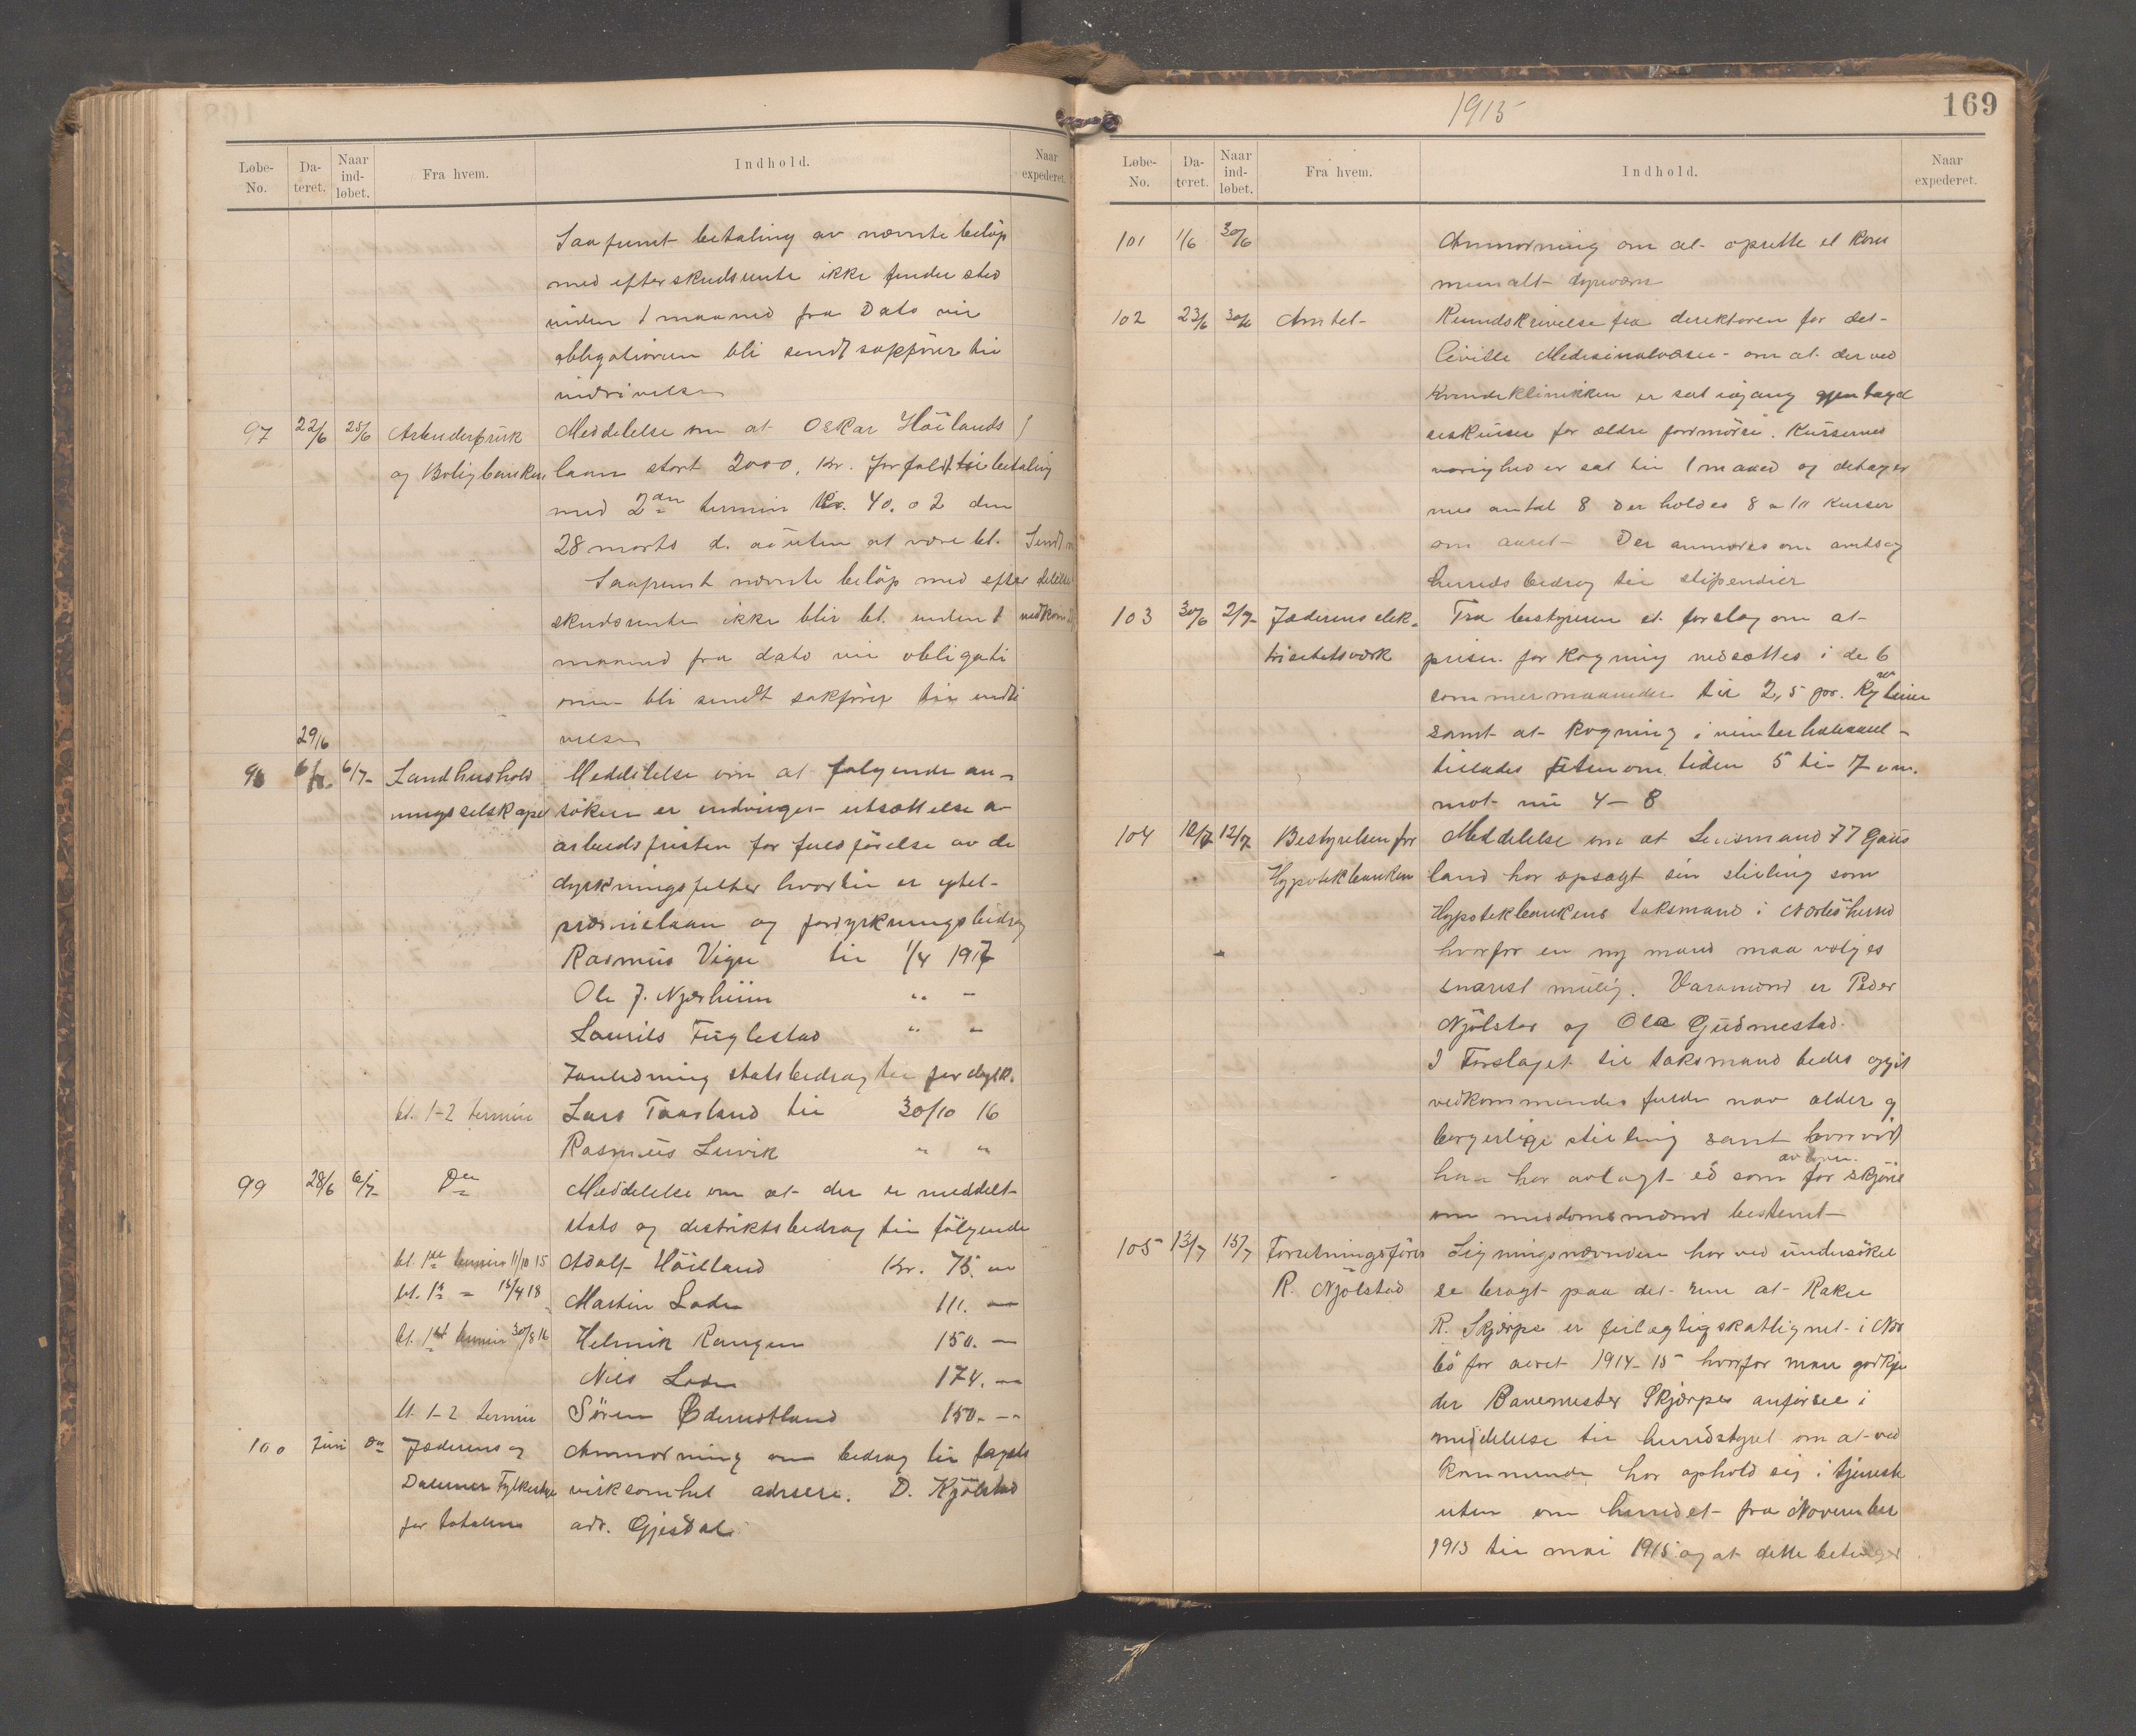 Løbe-No. Da-teret. Naar ind-løbet. Fra hvem. Indhold. Naar expederet.
Saafremt betaling av nævnte beløp
med efterskudsrente ikke finder sted
inden 1 maaned fra Dato vil
obligationen bli sendt sakfører til
inddrivelse
97 22/6 25/6 Arbeiderbruk Meddelelse om at Oskar Høilands
og Boligbanken laan stort 2000, Kr. forfaldt til betaling
med 2den termin Kr. 40.02 den
28 marts d. a. uten at være bt. Sendt
Saafremt nævnte beløp med efter
skudsrente ikke blir bt. inden 1 vedkom
maaned fra dato vil obligati
onen bli sendt sakfører til inddri
velse
29/6
98 6/7 Landhushold Meddelelse om at følgende an-
ningsselskapet søkere er indvilget utsættelse a
arbeidsfristen for fuldførelse av de
dyrkningsfelter hvortil er ytet
præmielaan og fordyrkningsbidrag
Rasmus Vigre til 1/4 1917
Ole J. Njærheim " -
Laurits Fuglestad " -
I anledning statsbidrag til fordyrk.
bt. 1-2 termin Lars Taarland til 30/10 16
Rasmus Lervik " "
99 28/6 6/7 Do Meddelelse om at der er meddelt
stats og distriktsbidrag til følgende
bt. 1ste termin 11/10 15 Adolf Höiland Kr. 75. -
bt. 1ste = 15/4 18 Martin Lode 111. -
bt. 1ste termin 30/8 16 Helmik Rangen 150. -
Nils Lode 174. -
bt. 1-2 termin Søren Ødemotland 150. -
100 Juni Do Jæderens og Anmodning om bidrag til
Dalernes Fylkeslag virksomhet adresse. D. Kjølstad
for totalens adr. Gjesdal
1915
169
Løbe-No. Da-teret. Naar ind-løbet. Fra hvem. Indhold. Naar expederet.
101 1/6 30/6 Anmodning om at oprette et kom
munalt dyrværn
102 23/6 30/6 Amtet Rundskrivelse fra direktøren for det
Civille Medisinalvæsen - om at der ved
Kvindeklinikken er sat igang gjentagel
seskurser for ældre jordmødre. Kursernes
varighed er sat til 1 maaned og deltager
nes antal 8 Der holdes 8 a 10 kurser
om aaret Der anmodes om amts og
herreds bidrag til stipendier
103 30/6 2/7 Jæderens elek Fra bestyreren et forslag om at
trisitetsværk prisen for Kogning nedsættes i de 6
sommermaaneder til 2,5 ør. Kv timer
samt at Kogning i vinterhalvaaret
tillades utenom tiden 5 til 7 em.
mot nu 4-8
104 12/7 12/7 Bestyrelsen for Meddelelse om at Lensmand Gaus
Hypotekbanken land har opsagt sin stilling som
Hypotekbankens taksmand i Nærbö herred
hvorfor en ny mand maa vælges
snarest mulig. Varamænd er Peder
Njölstad og Ola Gudmestad.
I Forslaget til taksmand bedes opgit
vedkommendes fulde navn alder og
borgerlige stilling samt hvorvidt
han har avlagt ed som av loven for skjøns
om meddomsmænd bestemt
105 13/7 15/7 Forretningsfører Ligningsnævnden har ved undersökel
R. Njølstad se bragt paa det rene at
R. Skjærpe er feilagtig skatlignet i Nær
bö for aaret 1914-15 hvorfor man godkje
der Banemester Skjærpes anførsel i
meddelelse til herredstyret om at ved
kommende har ophold sig i tjeneste
uten om herredet fra November
1913 til mai 1915 og at dette betinger